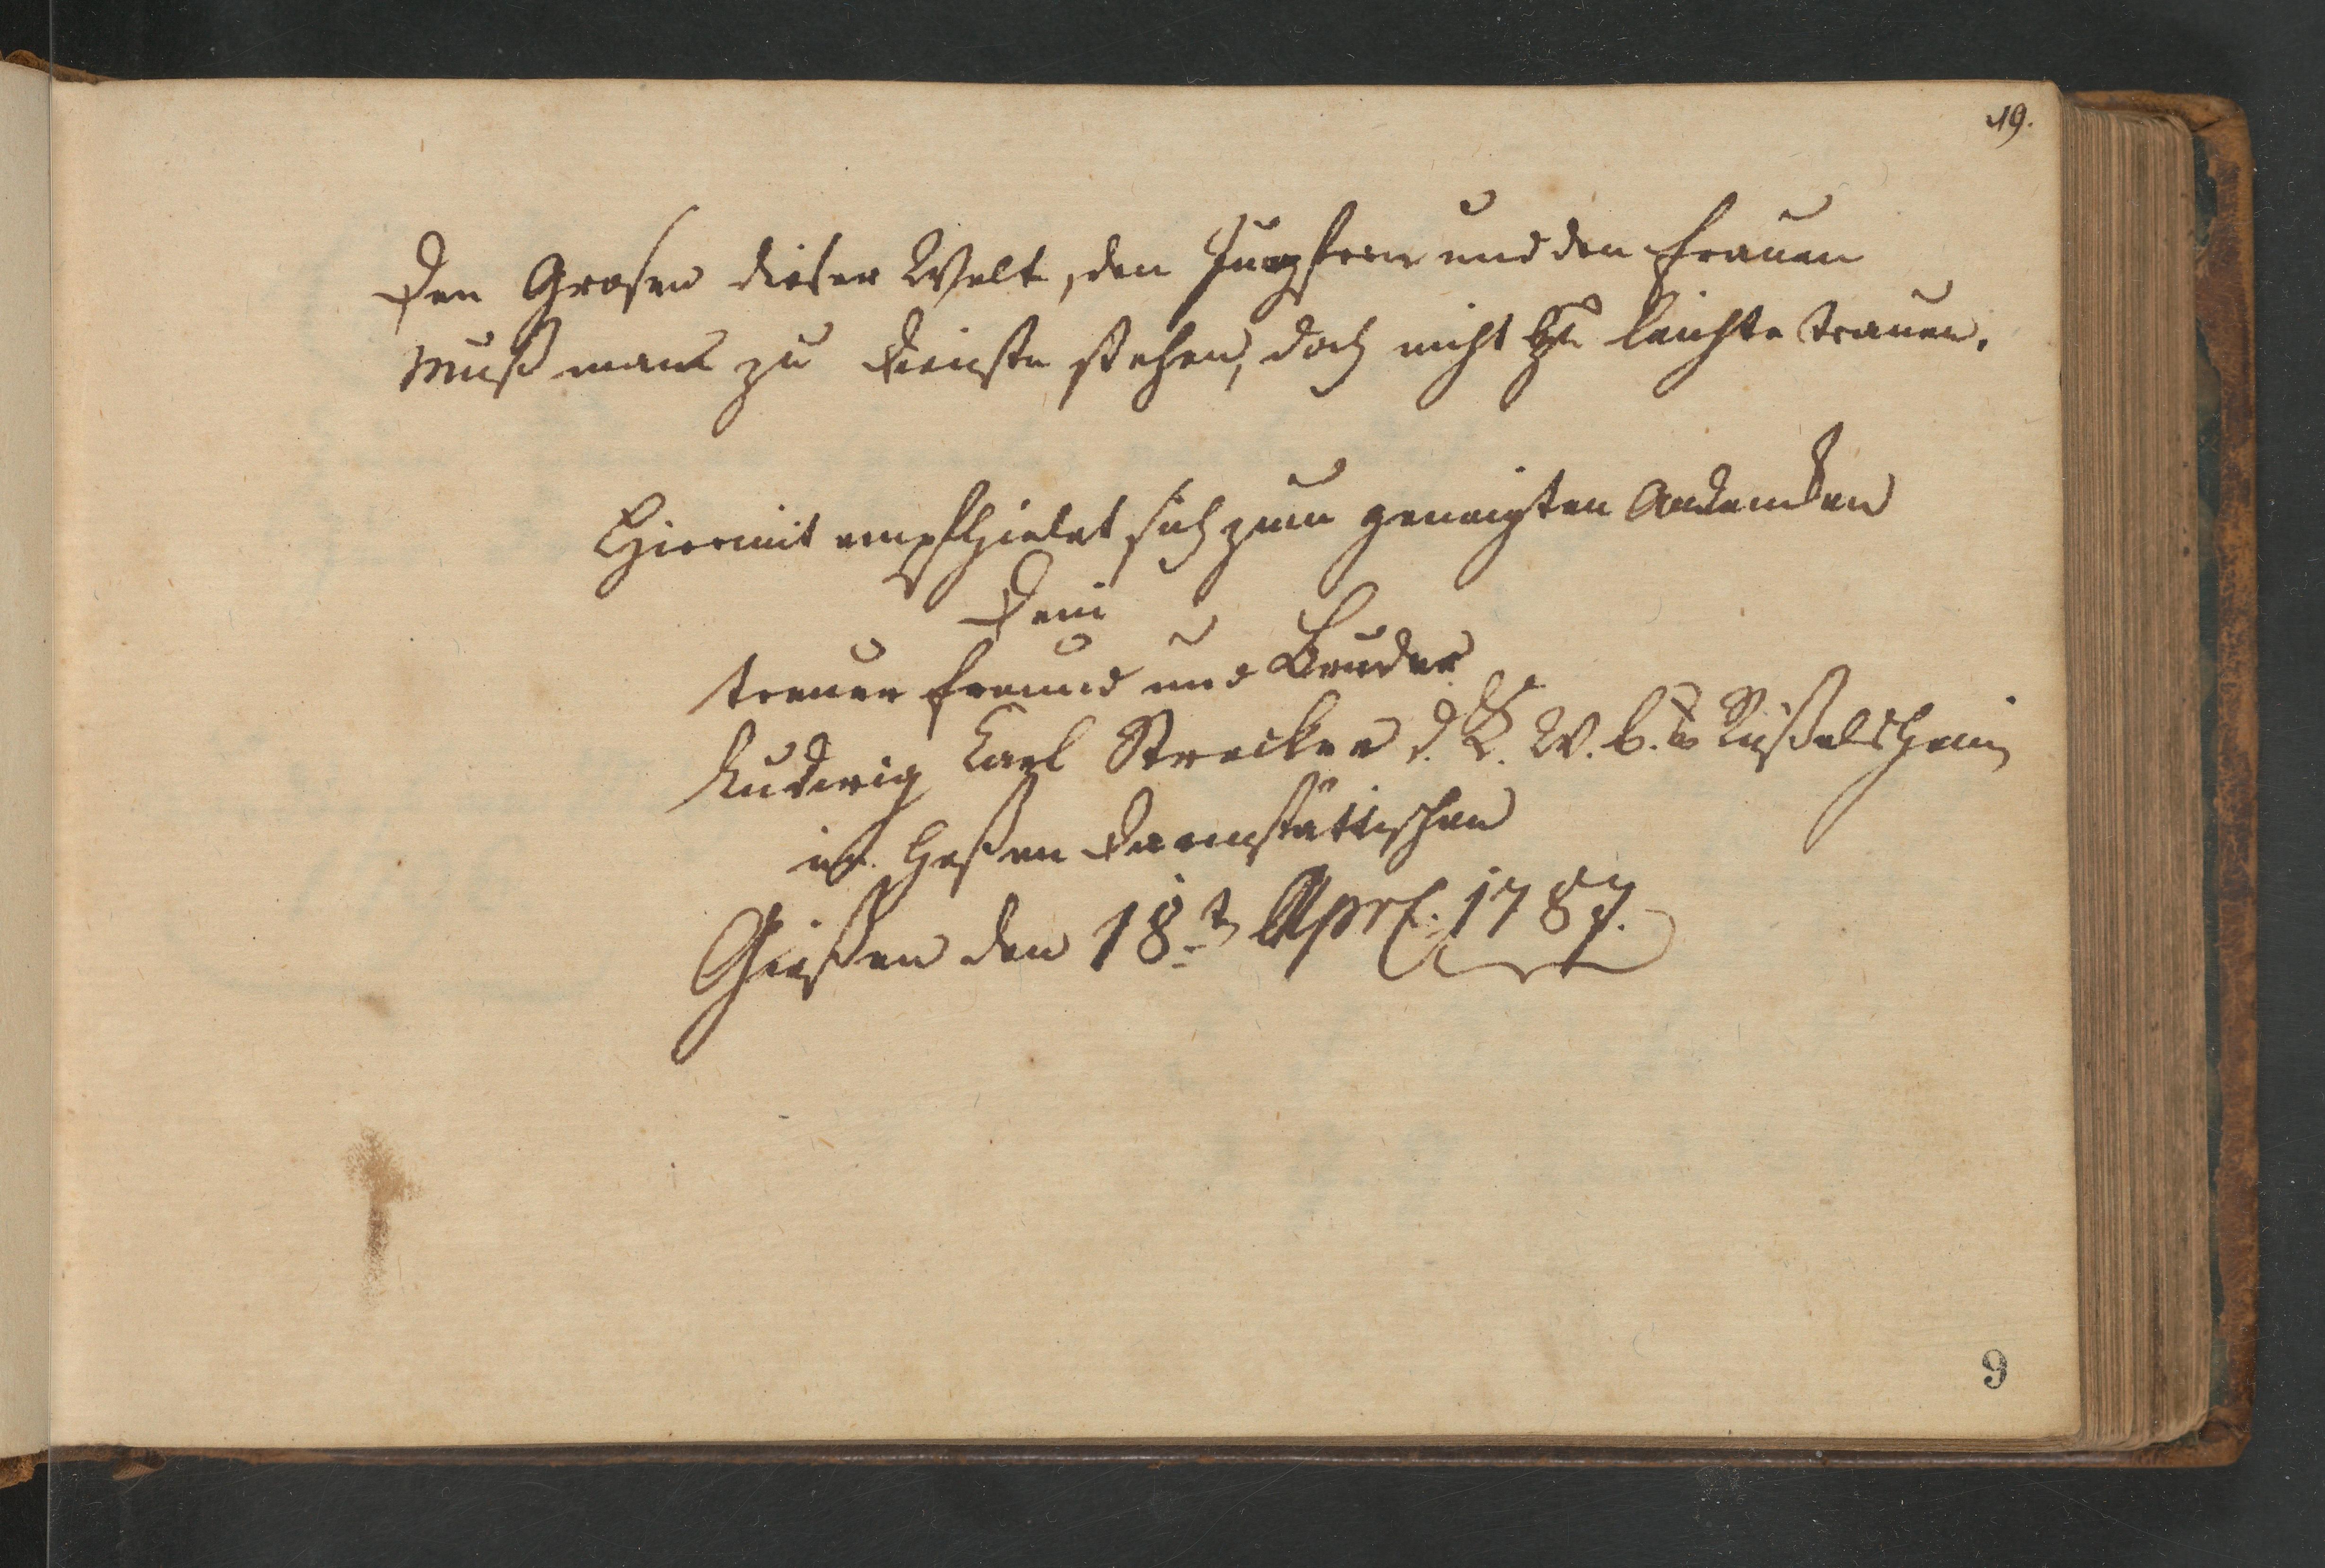 19.
Den Grosen dieser Welt, den Jungfern und den Frauen
Muß man zu Dienste stehen, doch nicht zu leichte trauen.
Hiermit empfhielet sich zum geneigten Andencken
Dein
treuer Freund und Bruder
Ludwig Carl Strecker d. W. b. Rüßelsheim
im Heßen Darmstättischen
Gießen den 18t Aprl. 1787.
9